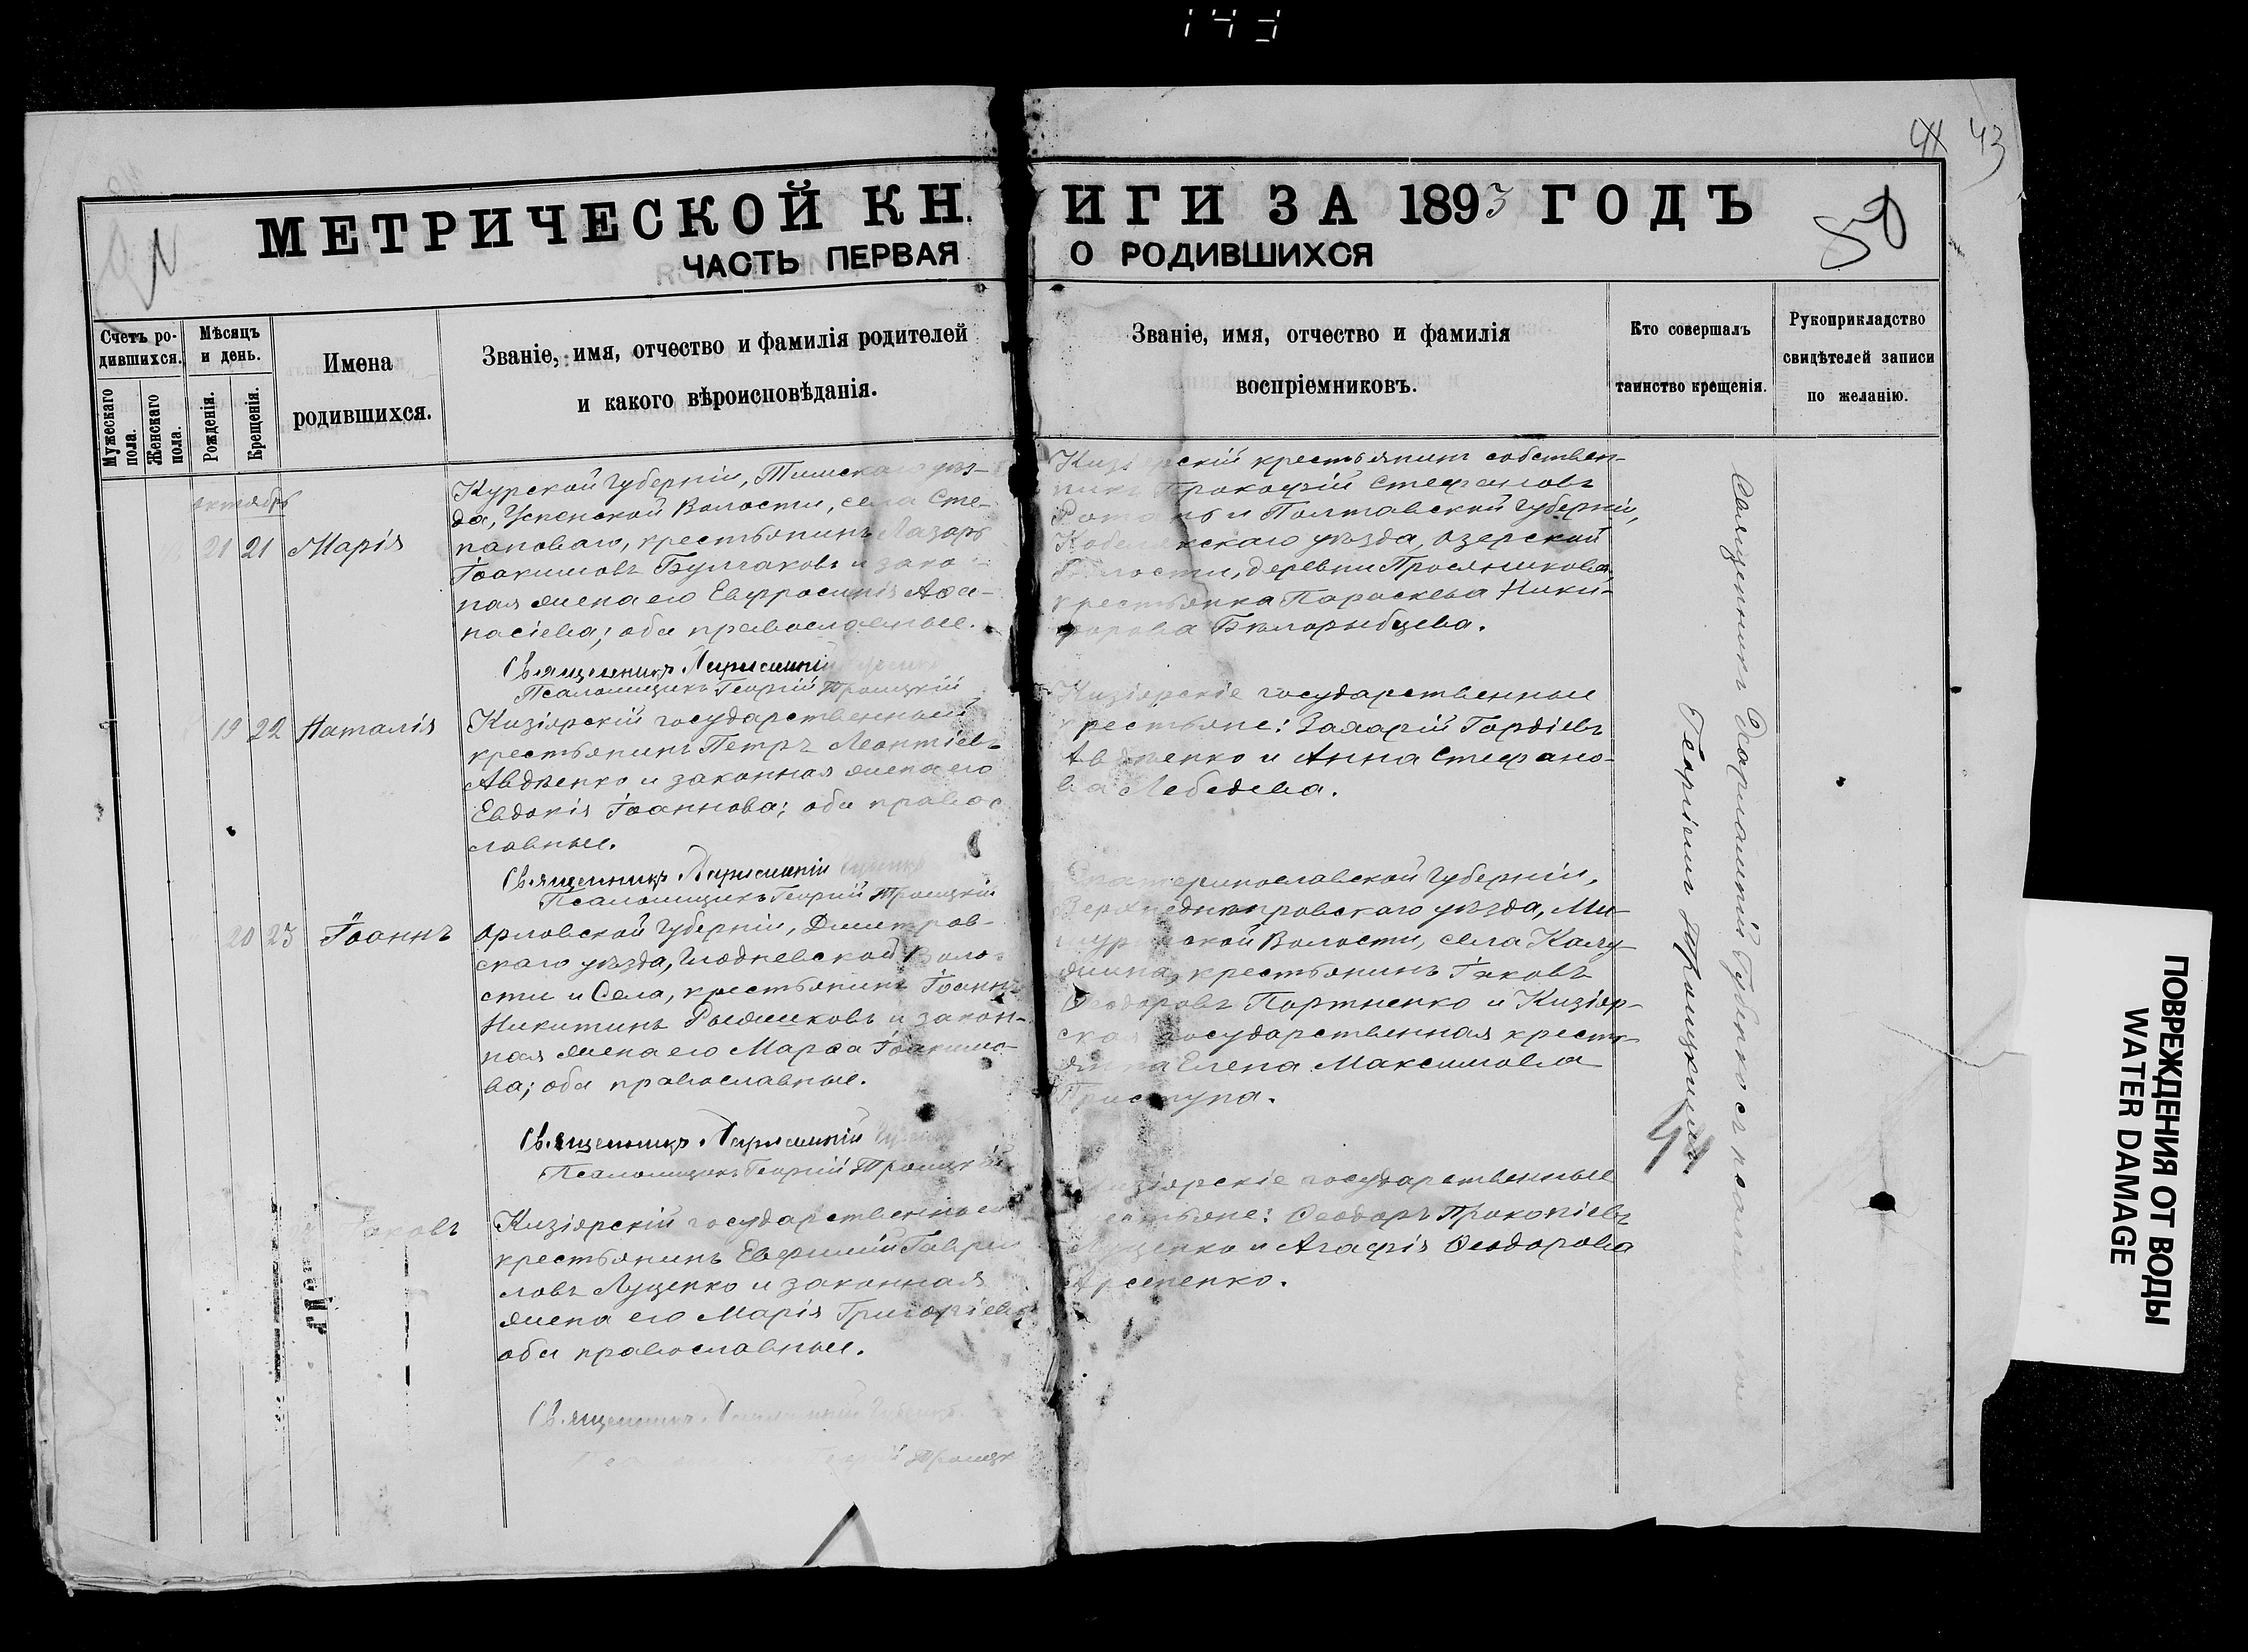 43
МЕТРИЧЕСКОЙ КНИГИ ЗА 1893 ГОДЪ
50
ЧАСТЬ ПЕРВАЯ О РОДИВШИХСЯ
Счетъ ро-
дившихся.
Мужескаго пола.
Женскаго пола.
Мѣсяцъ
и день.
Рожденія.
Крещенія.
Имена
родившихся.
Званіе, имя, отчество и фамилія родителей
и какого вѣроисповѣданія.
Званіе, имя, отчество и фамилія
воспріемниковъ.
Кто совершалъ
таинство крещенія.
Рукоприкладство
свидѣтелей записи
по желанію.
октябрь
21 21 Марія
Курской Губерніи, Тимскаго уѣз-
да, Успенской Волости, села Сте-
пановаго, крестьянинъ Лазарь
Іоакимовъ Булгаковъ и закон-
ная жена его Евфросинія Аѳа-
насіева; оба православные.
Священникъ Харлампій
Псаломщикъ Георгій Троицкій
крестьянинъ собствен-
никъ Прокофій Стефановъ
и Полтавской Губерніи,
уѣзда, Озерской
Волости, деревни Просяникова,
крестьянка Параскева Ники-
форова Бѣлорыбцева.
19 22 Наталія
Кизіярскій государственный
крестьянинъ Петръ Леонтіевъ
Авдѣенко и законная жена его
Евдокія Іоаннова; оба правос-
лавные.
Священникъ Харлампій
Псаломщикъ Георгій Троицкій
Кизіярскіе государственные
крестьяне: Захарій Гордіевъ
Авдѣенко и Анна Стефано-
ва Лебедева.
20 23 Іоаннъ
Орловской Губерніи, Дмитров-
скаго уѣзда, Глодневской Воло-
сти и Села, крестьянинъ Іоаннъ
Никитинъ Рыжиковъ и закон-
ная жена его Марѳа Іоакимо-
ва; оба православные.
Священникъ Харлампій
Псаломщикъ Георгій Троицкій
Екатеринославской Губерніи,
Верхнеднѣпровскаго уѣзда, Ми-
шуринской Волости, села Калу-
жина, крестьянинъ Іаковъ
Ѳеодоровъ Портненко и Кизіяр-
ская государственная кресть-
янка Елена Максимова
Приступа.
Іаковъ
Кизіярскій государственный
крестьянинъ Евфимій Гаври-
ловъ Луценко и законная
жена его Марія Григоріева
оба православные.
Священникъ Харлампій Губенко
Георгій Троицк
Кизіярскіе государственные
крестьяне: Ѳеодоръ Прокопіевъ
Луценко и Агафія Ѳеодорова
Арсененко.
Священникъ Харлампій Губенко съ псаломщикомъ
Георгіемъ Троицкимъ.
ПОВРЕЖДЕНИЯ ОТ ВОДЫ
WATER DAMAGE